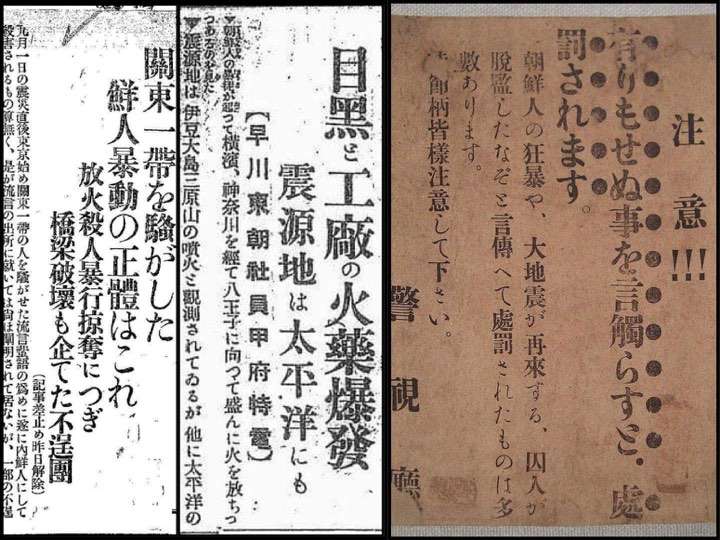 注意!!!
有りもせぬ事を言觸らすと、處
罰されます。
朝鮮人の狂暴や、大地震が再來する、囚人が
脫監したなぞと言傳へて處罰されたものは多
數あります。
時節柄皆樣注意して下さい。
警視廳
目黑と工廠の火藥爆發
震源地は太平洋にも
【早川東朝社員甲府特電】
▼朝鮮人の暴徒が起つて橫濱、神奈川を經て八王子に向つて盛んに火を放ちつ
つあるのを見た
▼震源地は伊豆大島三原山の噴火と觀測されてゐるが他に太平洋の
關東一帶を騷がした
鮮人暴動の正體はこれ
放火殺人暴行掠奪につぎ
橋梁破壞も企てた不逞團
(記事差止め昨日解除)
九月一日の震災直後東京始め關東一帶の人を騷がせた流言蜚語の爲めに遂に內鮮人にして
殺害されるもの算無く、是が流言の出所に就いては尙ほ闡明されて居ないが、一部の不逞